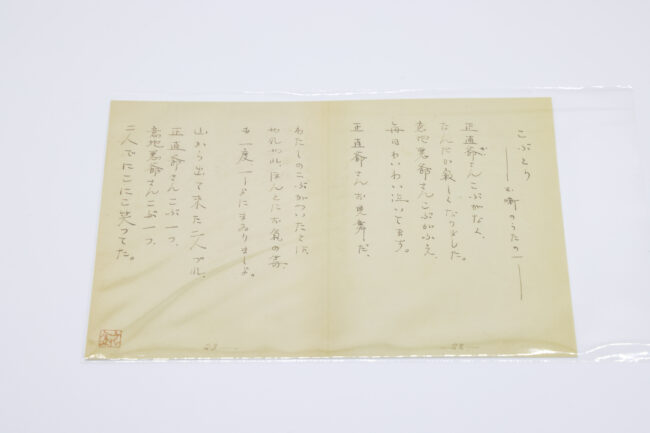 こぶとり
――お噺のうたの一――
正直爺さんこぶがなく、
なんだか寂しくなりました。
意地悪爺さんこぶがふえ、
毎日わいわい泣いてます。
正直爺さんお見舞だ、
わたしのこぶがついたとは、
やれやれ、ほんとにお氣の毒、
も一度一しよにまゐりましよ。
山から出て来た二人づれ、
正直爺さんこぶ一つ、
意地悪爺さんこぶ一つ、
二人でにこにこ笑つてた。
-22-
23-